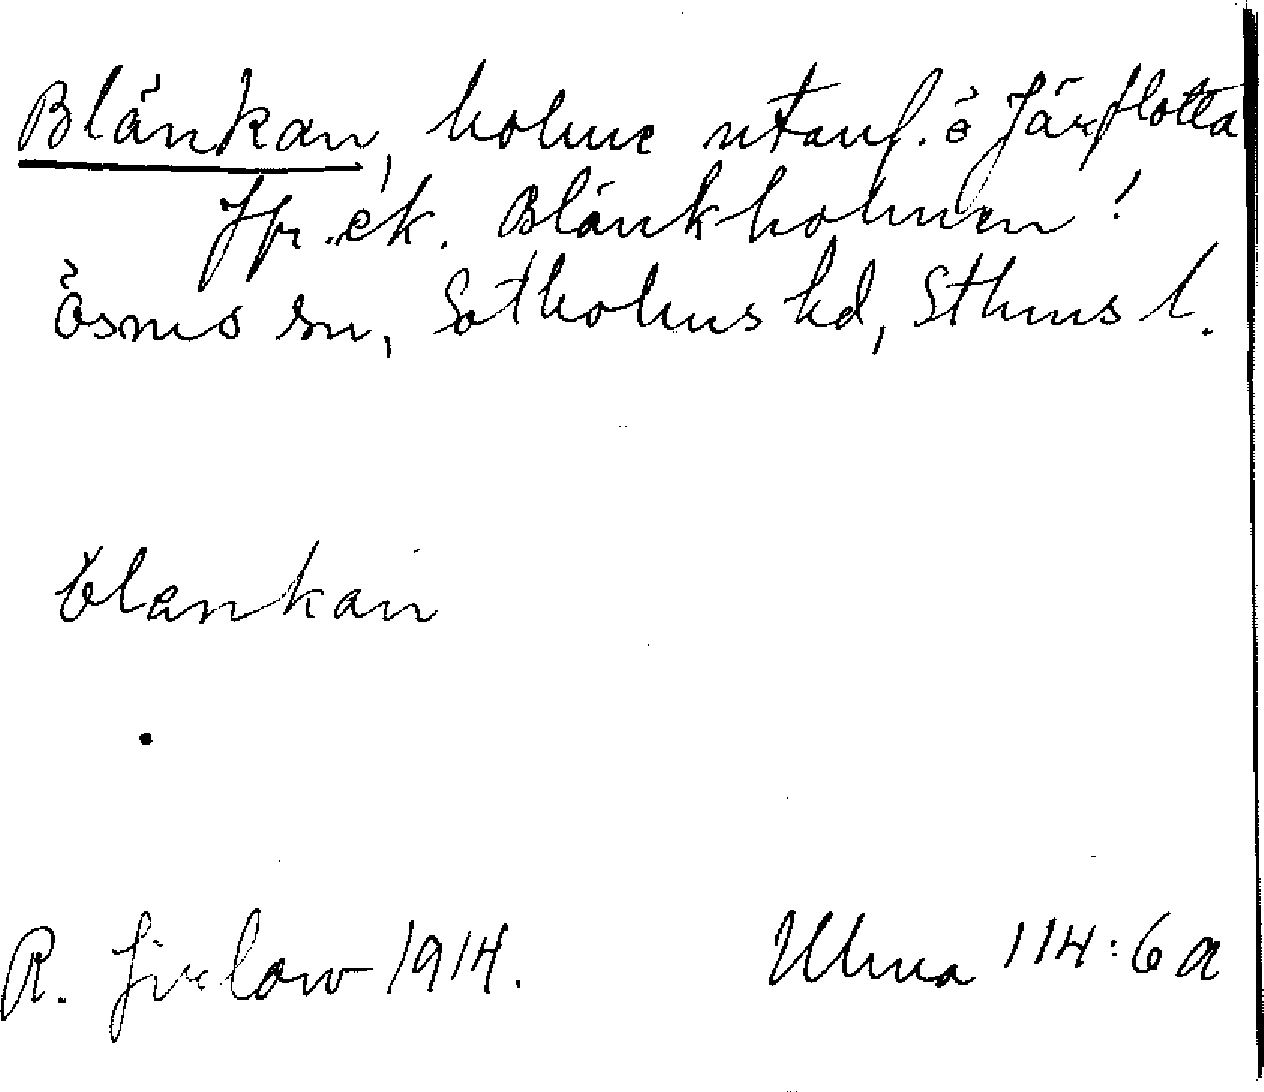 Blänkan, holme utanf. ö Järflotta
Jfr. ek. Blänkholmen!
Ösmo sn, Sotholms hd, Sthms l.
blankan
R. Jirlow 1914.
Ulma 114:6a